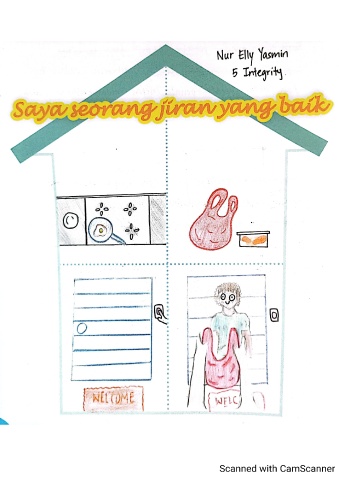 Nur Elly Yasmin
5 Integrity
Saya seorang jiran yang baik
WELCOME
WELC
Scanned with CamScanner